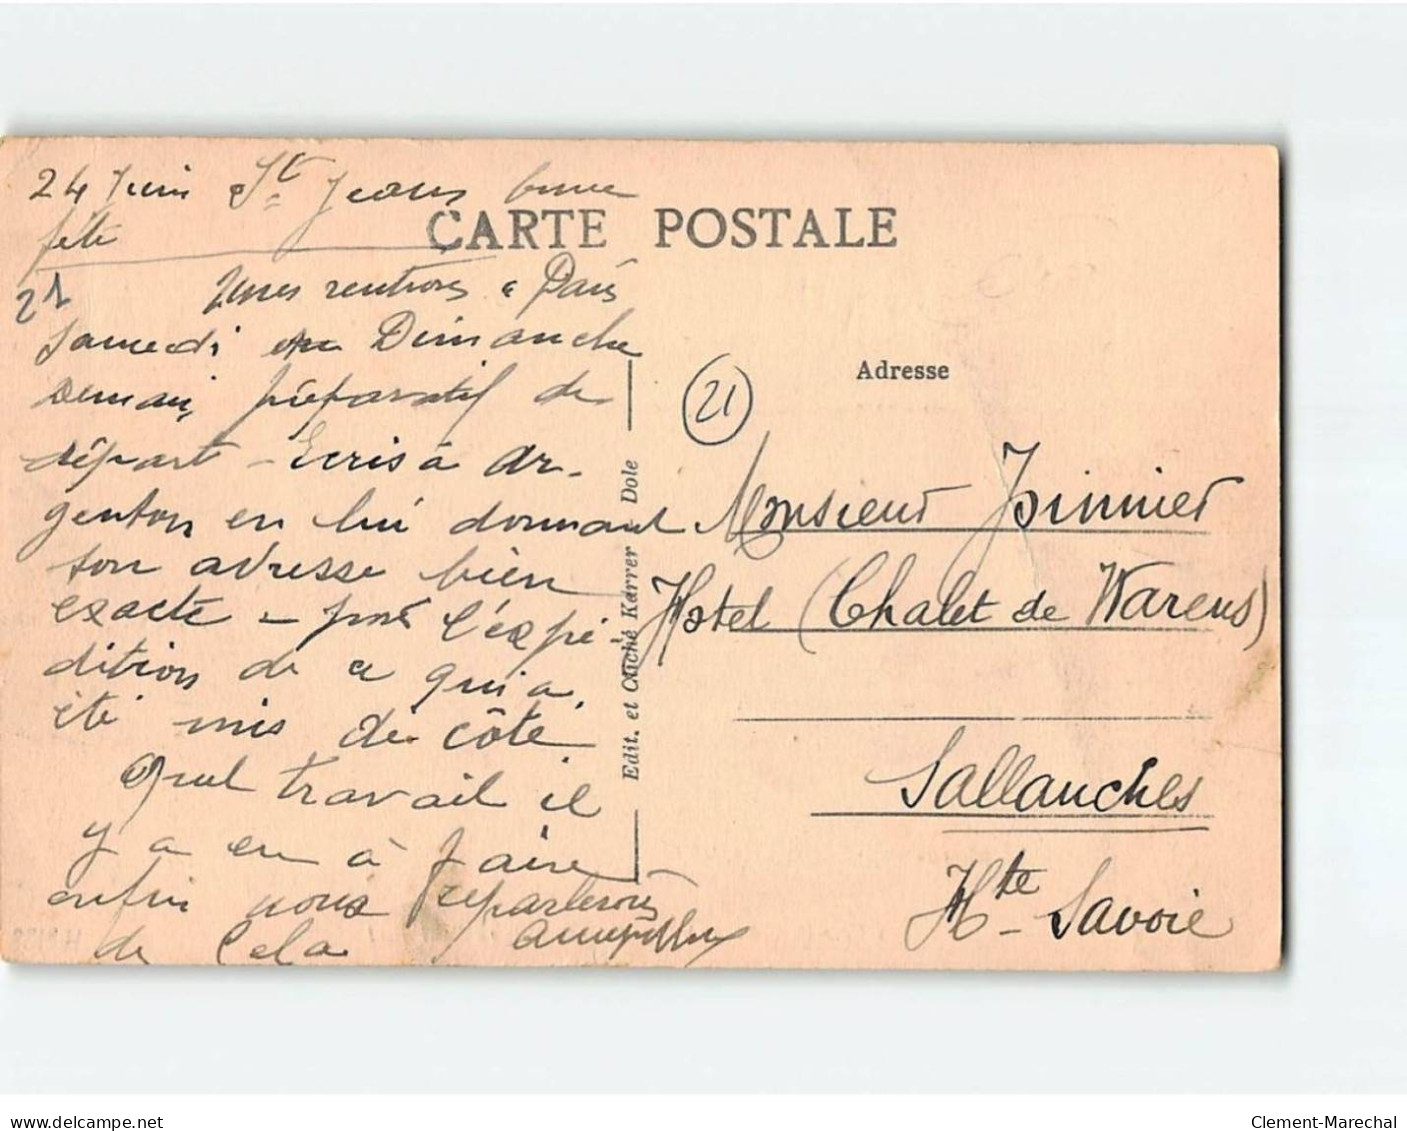 24 Juin St Jean bonne
fête
CARTE POSTALE
21
rentrons à Paris
Samedi ou Dimanche
demain préparatif de
départ - Ecris à Ar-
genton en lui donnant
son adresse bien
exacte - pour l'expé-
dition de ce qui a
été mis de côté
Quel travail il
y a eu à faire
enfin nous reparlerons
de cela
Edit. et Cliché Karrer Dole
21
Adresse
Monsieur Joinnier
Hotel (Chalet de Warens)
Sallanches
Hte Savoie
delcampe.net
Clement-Marechal